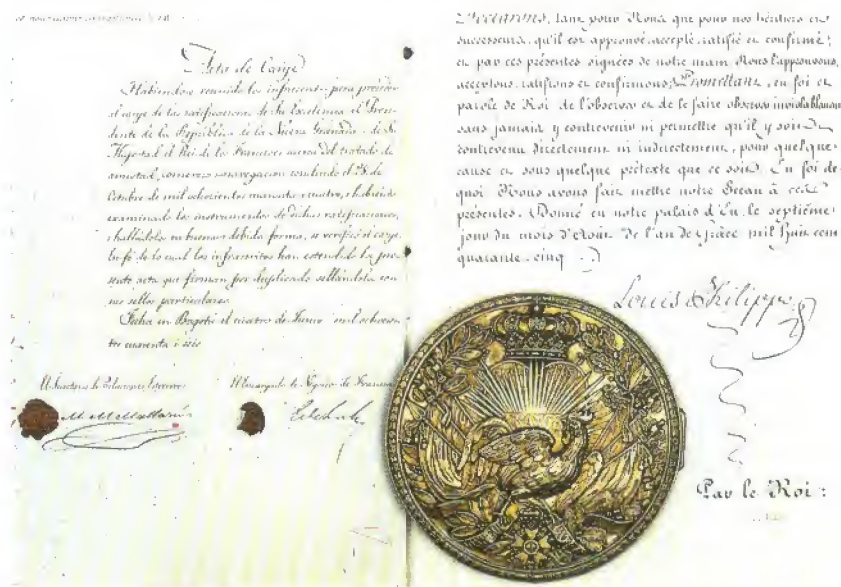 Acta de Canje
Habiendose reunido los infrascritos para proceder
al canje de las ratificaciones de Su Excelencia el Presi-
dente de la República de la Nueva Granada i de Su
Majestad el Rei de los Franceses acerca del tratado de
amistad, comercio i navegacion concluido el 28 de
Octubre de mil ochocientos cuarenta i cuatro, i habiendo
examinado los instrumentos de dichas ratificaciones,
i hallándolos en buena i debida forma, se verificó el canje.
En fé de lo cual los infrascritos han estendido la pre-
sente acta que firman por duplicado sellándola con
sus sellos particulares.
Fecha en Bogotá el cuatro de Junio mil ochocien-
tos cuarenta i seis
El Secretario de Relaciones Esteriores
El Encargado de Negocios de Francia
Declarons, tant pour Nous que pour nos héritiers et
successeurs, qu'il est approuvé accepté ratifié et confirmé;
et par ces présentes signées de notre main Nous l'approuvons,
acceptons, ratifions et confirmons; Promettant, en foi et
parole de Roi de l'observer et de le faire observer inviolablement
sans jamais y contrevenir ni permettre qu'il y soit
contrevenu directement ni indirectement, pour quelque
cause et sous quelque prétexte que ce soit. En foi de
quoi Nous avons fait mettre notre Sceau à ces
présentes. Donné en notre palais d'Eu, le septième
jour du mois d'Août de l'an de grâce mil huit cent
quarante-cinq
Louis Philippe
Par le Roi :